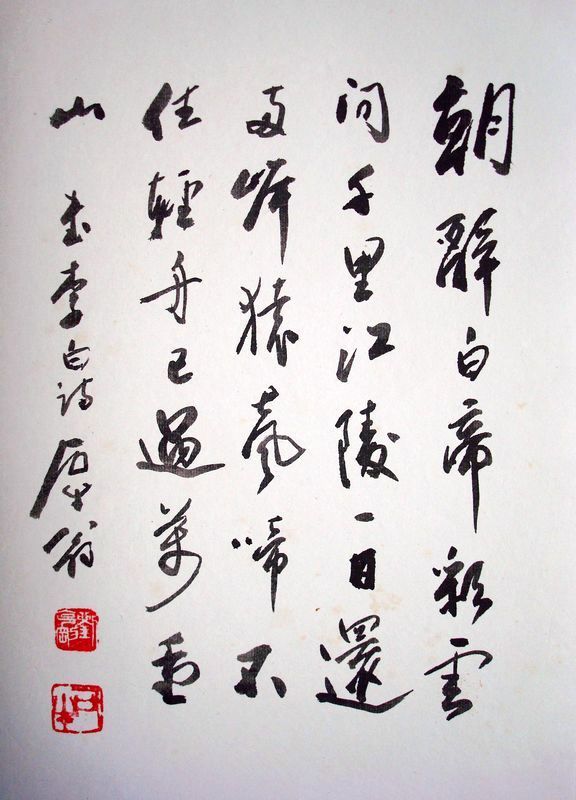 朝辭白帝彩雲
间千里江陵一日還
两岸猿聲啼不
住輕舟已過萬重
山 書李白詩 翁